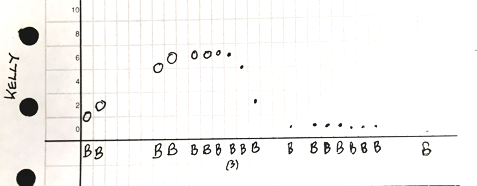 KELLY
10
8
6
4
2
0
B B B B B B B B B B B B B B B B B B B
(3)